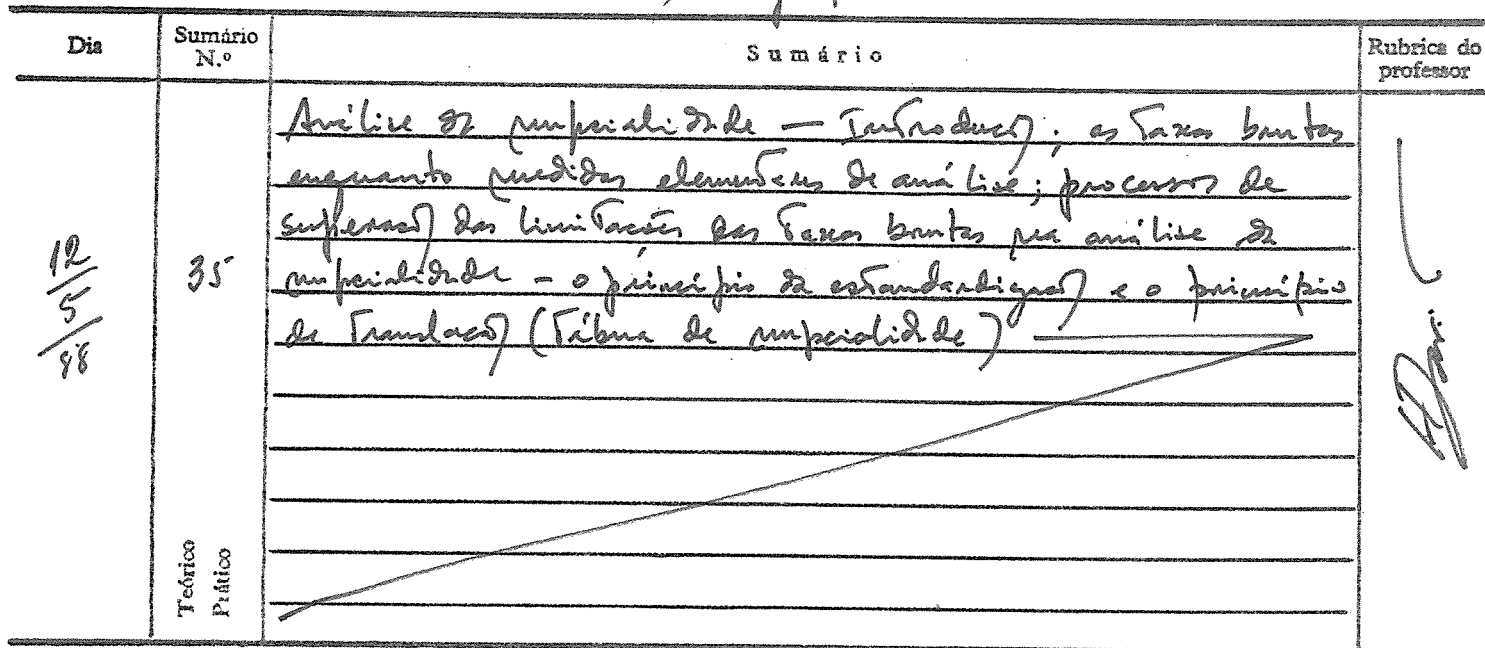 Dia
Sumário N.º
Sumário
Rubrica do professor
12/5/88
35
Análise da nupcialidade — Introdução; as taxas brutas
enquanto medidas elementares de análise; processos de
superação das limitações das taxas brutas na análise da
nupcialidade - o princípio da estandardização e o princípio
de translação (Tábua de nupcialidade)
Teórico
Prático